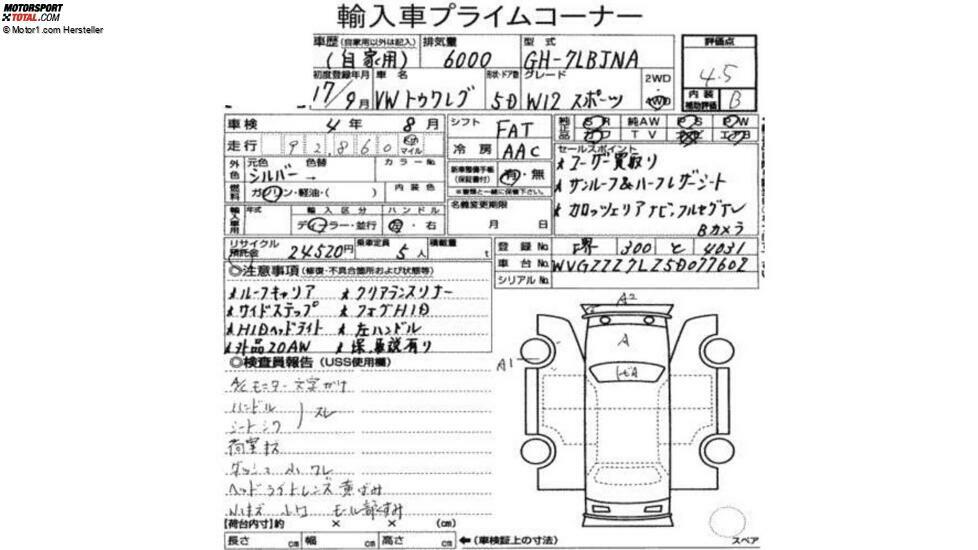 MOTORSPORT
TOTAL.COM
© Motor1.com Hersteller
輸入車プライムコーナー
車歴 (自家用以外は記入) 排気量 型式 評価点
(自家用) 6000 GH-7LBJNA 4.5
初度登録年月 車名 形状・ドア数 グレード 2WD
17/9月 VWトゥワレグ 5D W12 スポーツ 4WD 内装補助評価 B
車検 4年 8月 シフト FAT 純正品 SR 純AW PS PW
走行 92,860 km マイル 冷房 AAC カワ TV エアB
外色 元色 色替 カラーNo. 新車整備手帳 (保証書付) 有・無 セールスポイント
シルバー → ※書類と一緒に保管下さい。 ★ユーザー買取り
燃料 ガソリン・軽油・( ) 内装色 ★サンルーフ&ハーフレザーシート
輸入車用 年式 輸入区分 ハンドル 名義変更期限 ★カロッツェリアナビ,フルセグTV
ディーラー・並行 左・右 月 日 Bカメラ
リサイクル預託金 24520円 乗車定員 5人 積載量 t 登録No. 堺 300 と 4031
◎注意事項 (修復・不具合箇所および状態等) 車台No. WVGZZZ7LZ5D077602
シリアルNo.
★ルーフキャリア ★クリアランスソナー
★ワイドステップ ★フォグHID
★HIDヘッドライト ★左ハンドル
★外品20AW ★保,車説有り
◎検査員報告 (USS使用欄)
A/Cモニター文字かけ
ハンドル
シートシワ )スレ
荷室キズ
ダッシュ小ワレ
ヘッドライトレンズ黄ばみ
モール部くすみ
A2
A
A1
【荷台内寸】約 × × (cm)
長さ cm 幅 cm 高さ cm ←(車検証上の寸法) スペア